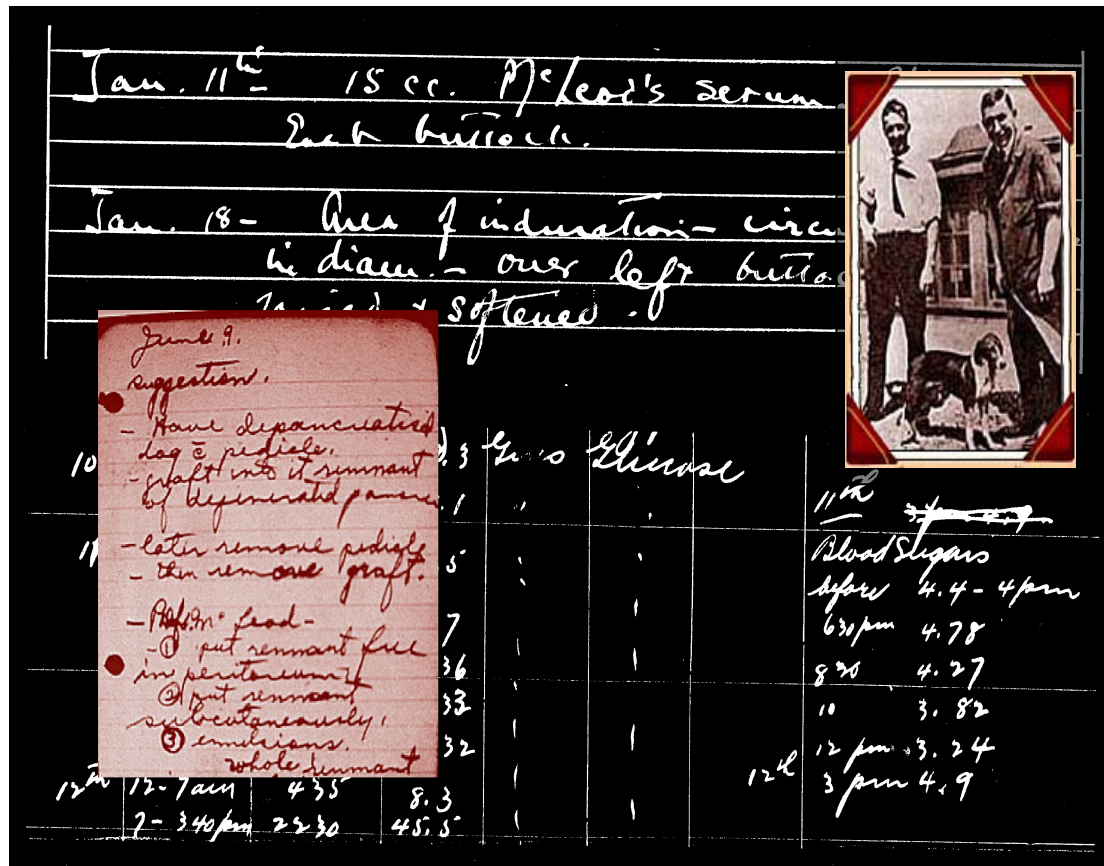 Jan. 11th 15 cc. McLeod's serum
Each buttock.
Jan. 18 - Area of induration -
in diam. - over left
& softened.
June 9.
suggestion.
- Have depancreatised
dog c̄ pedicle.
- graft into it remnant
of degenerated
- later remove pedicle
- then remove graft.
- Prof. Mc Leod -
- ① put remnant free
in peritoneum
② put remnant
subcutaneously.
③ emulsions.
whole remnant
10 .3 Gms Glucose
.1 "
11 5
7
36
33
32
12th 12-7am 435 8.3
7-340pm 2230 45.5
11th
Blood Sugars
before 4.4 - 4pm
630pm 4.78
830 4.27
10 3.82
12 pm 3.24
12th 3 pm 4.9